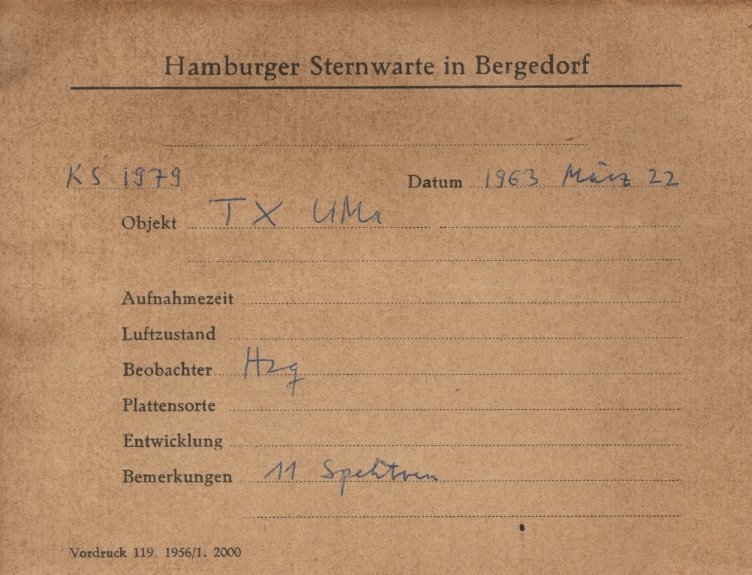 Hamburger Sternwarte in Bergedorf
KS 1979 Datum 1963 März 22
Objekt TX UMa
Aufnahmezeit
Luftzustand
Beobachter Hzg
Plattensorte
Entwicklung
Bemerkungen 11 Spektren
Vordruck 119. 1956/1. 2000